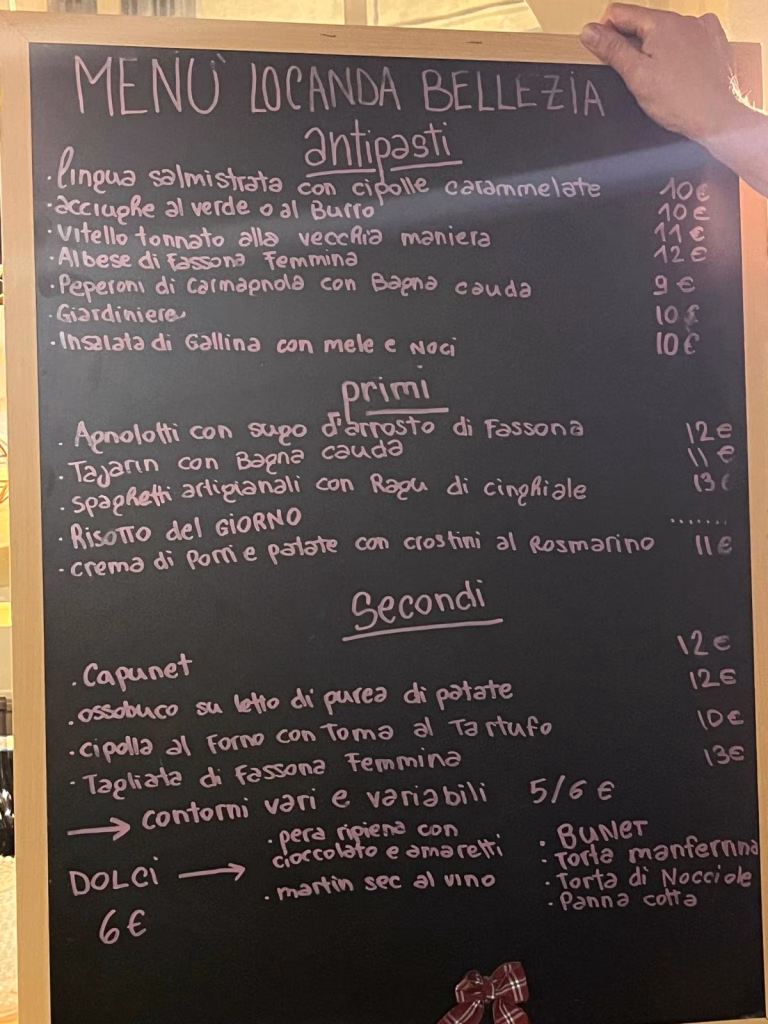 MENÙ LOCANDA BELLEZIA
antipasti
·lingua salmistrata con cipolle carammelate 10€
·acciughe al verde o al Burro 10€
·Vitello tonnato alla vecchia maniera 11€
·Albese di Fassona Femmina 12€
·Peperoni di Carmagnola con Bagna cauda 9€
·Giardiniera 10€
·Insalata di Gallina con mele e Noci 10€
primi
·Agnolotti con sugo d'arrosto di Fassona 12€
·Tajarin con Bagna cauda 11€
·spaghetti artigianali con Ragu di cinghiale 13€
·Risotto del GIORNO .......
·crema di Porri e patate con crostini al Rosmarino 11€
Secondi
·Capunet 12€
·ossobuco su letto di purea di patate 12€
·cipolla al Forno con Toma al Tartufo 10€
·Tagliata di Fassona Femmina 13€
→ contorni vari e variabili 5/6 €
DOLCI →
6€
·pera ripiena con
cioccolato e amaretti
·martin sec al vino
·BUNET
·Torta manfernina
·Torta di Nocciole
·Panna cotta